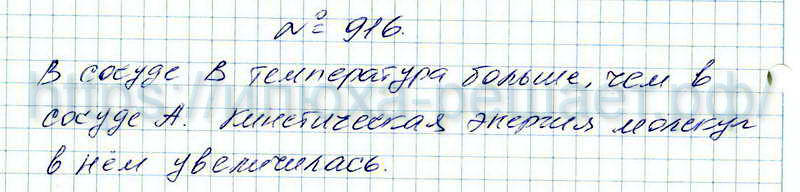 № 916.
В сосуде В температура больше, чем в
сосуде А. Кинетическая энергия молекул
в нём увеличилась.